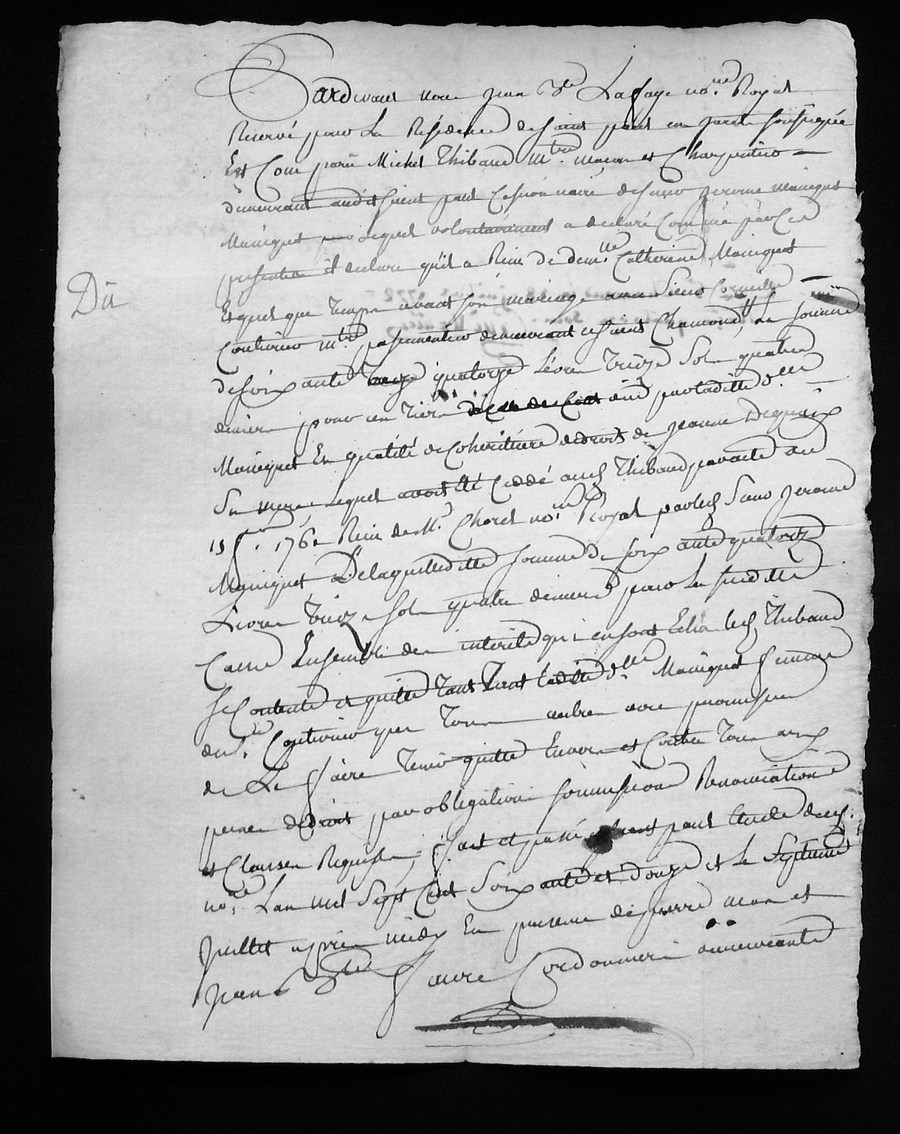 Pardevant nore Jean Bte Lafaye nore Royal
Reservé pour La Residence de saint paul en jarets soussigné
Est Comparu Michel Thibaud mtre macon et Charpentier
demeurant audit saint paul Cessionnaire de sieur jerome Maniquet
Maniquet lequel volontairement a declaré Comme par Ces
presentes il declare qu'il a Reçu de demlle Catherine Maniquet
Et quel que temps avant son mariage avec sieur Corneille
Couturier mtre passementier demeurant a saint Chamond La somme
de soixante quatorze Livres treize Sols quatre
deniers pour un tiers du par ladite dlle
Maniquet En qualité de Coheritiere de droit de Jeanne
Sa mere lequel Ceddé aud Thibaud par acte du
15 1762 Reçu de Me Choret nore Royal par led Sieur Jerome
Maniquet De laquelle ditte somme de soixante quatorze
Livres treize sols quatre deniers pour La susditte
Cause Ensemble des interets qui en sont Echu led Thibaud
se Contente et quitte tant ladite dlle Maniquet femme
dud Sr Couturier que tous autres avec promesse
de Le faire tenir quitte Envers et Contre tous aux
peines de droit par obligation soumission Renonciation
et Clauses Requises, fait et passé a saint paul Etude dud
nore Lan mil Sept Cent Soixante et douze et Le Septieme
Juillet apres midy En presence de pierre et
Jean Bte faure Cordonnier demeurants
Du